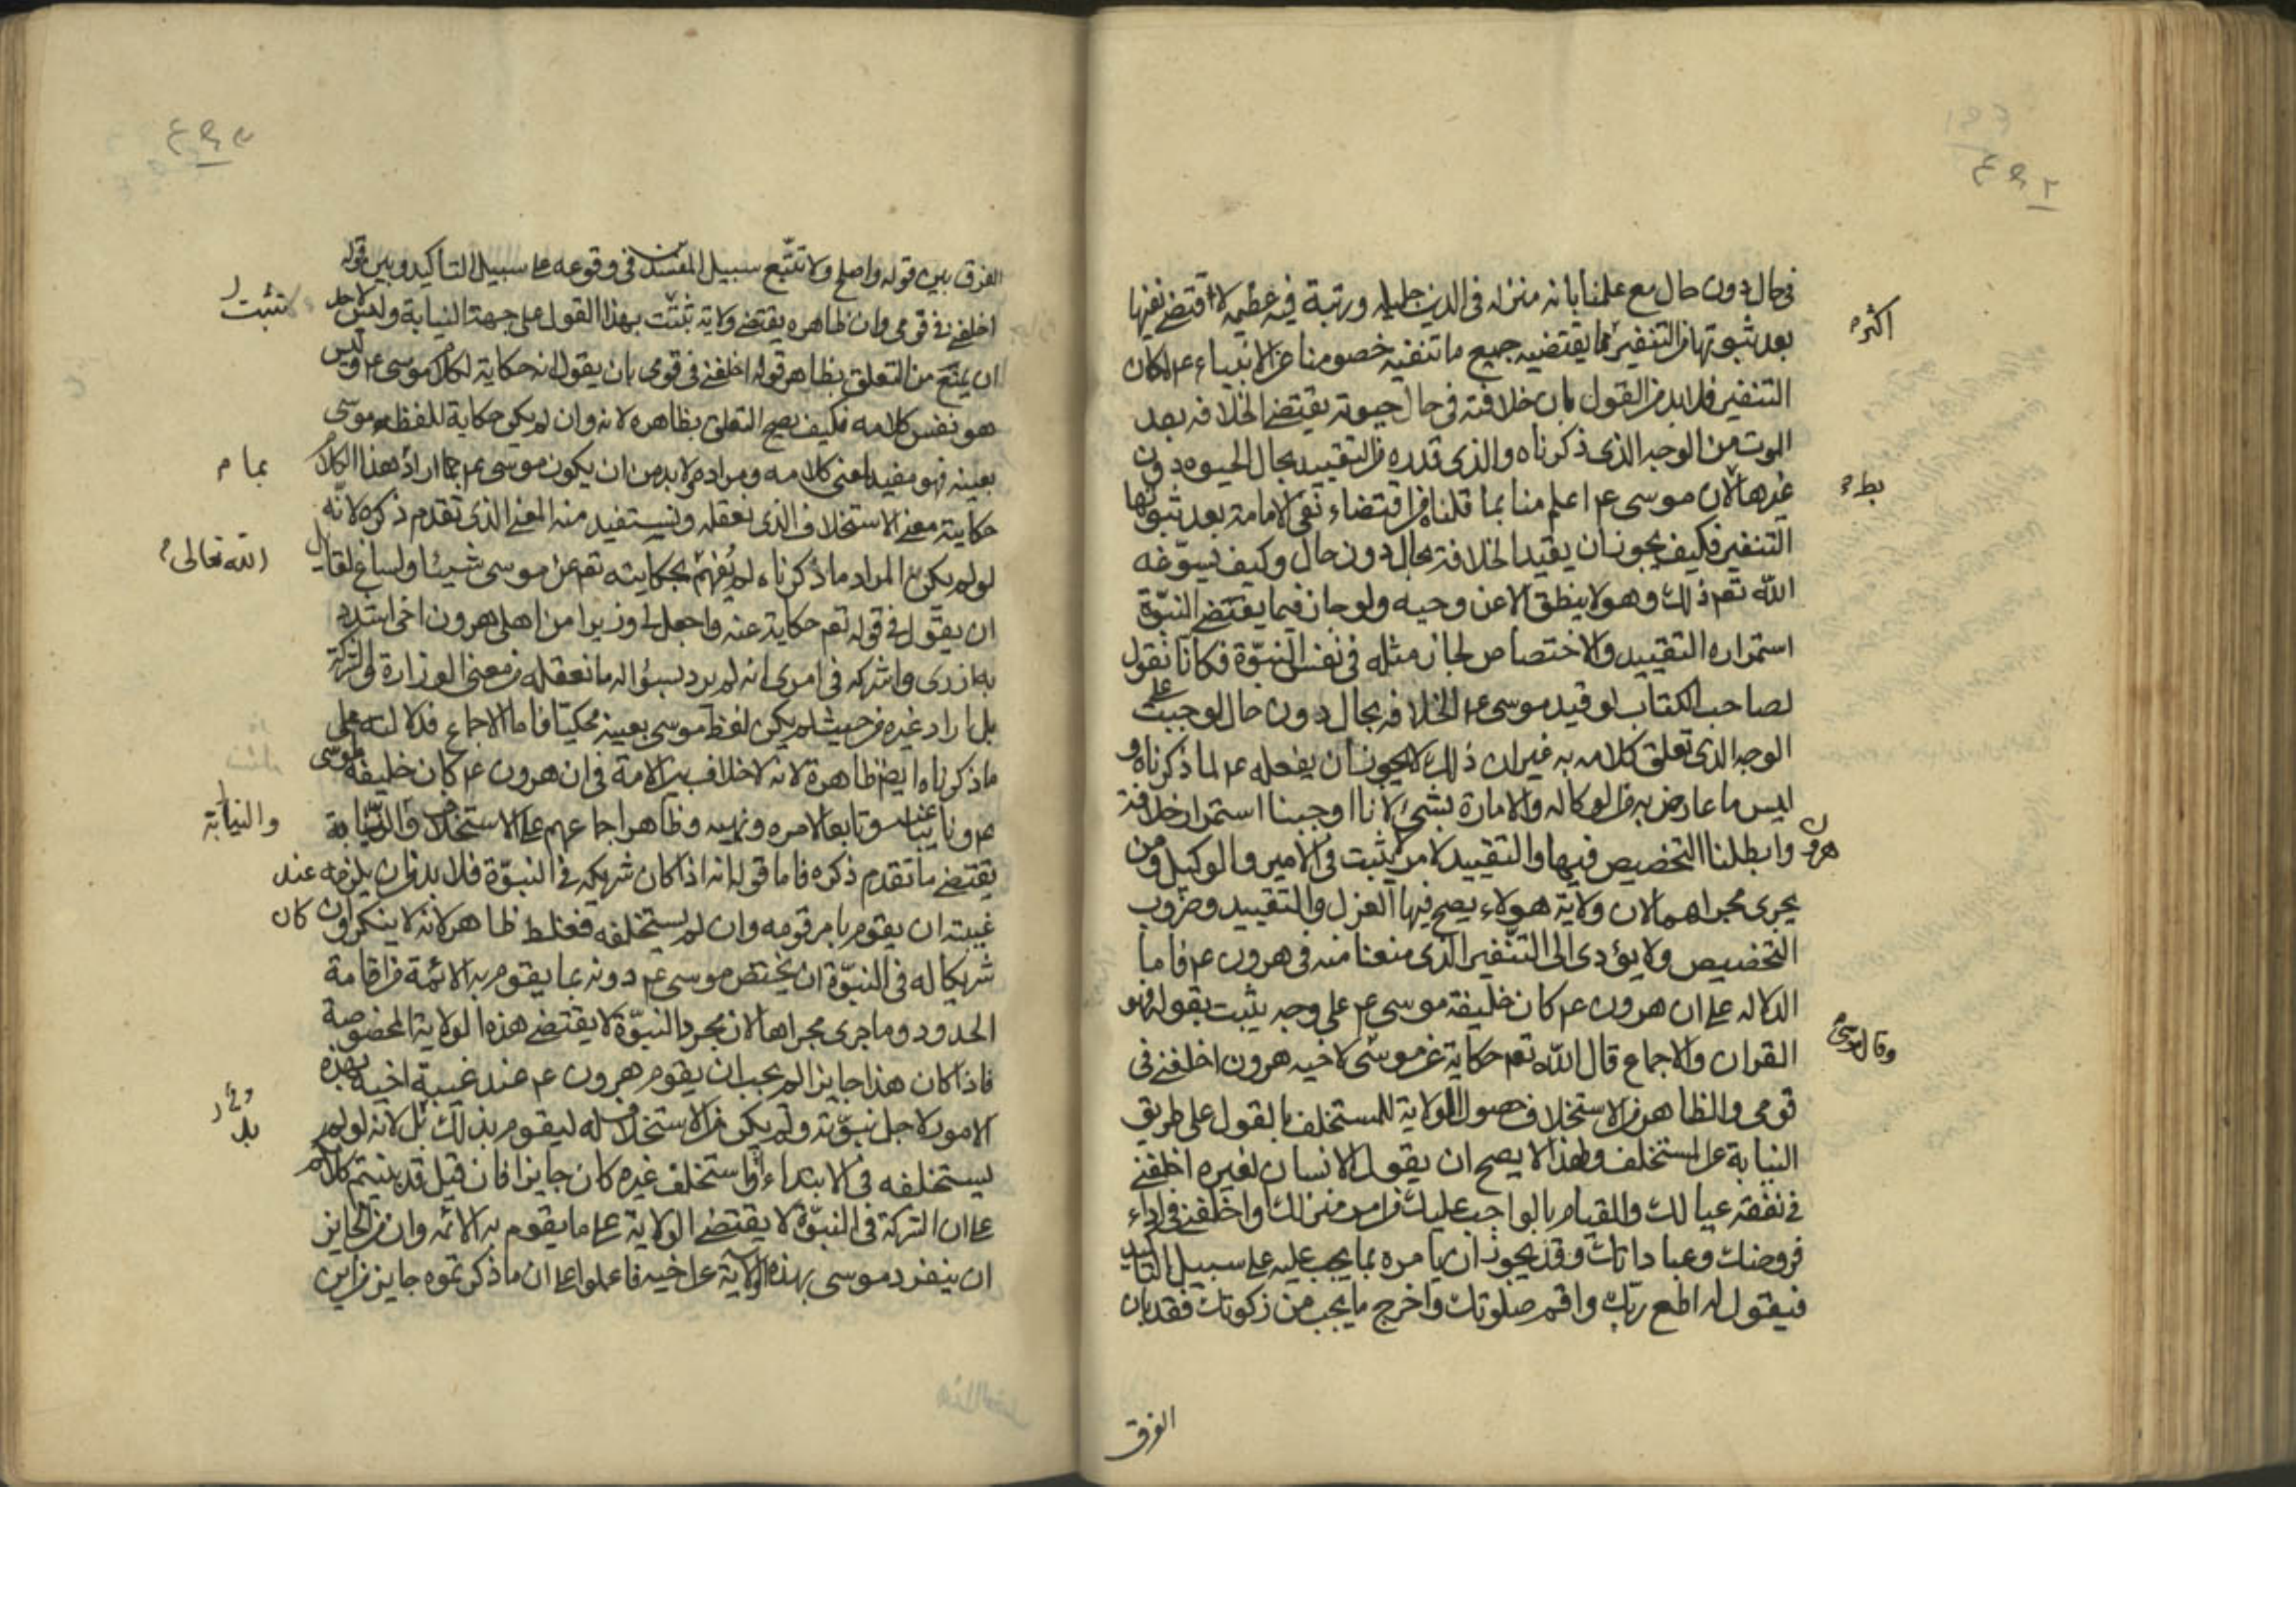 ٤٩٢
في حال دون حال مع علمنا بانه منزله فى الدين جليله ورتبة فيه عظيمه لاقتضے نفيها
اكثر
بعد ثبوتها من التنفير مما يقتضيه جميع ما تنفيه خصومنا عن الانبياء عم لمكان
التنفير فلا بد من القول بان خلافته فى حال حيوته يقتضے الخلافه بعد
الموت من الوجه الذى ذكرناه والذى قدره من التقييد بحال الحيوه دون
غيرها لان موسى عم اعلم منا بما قلناه من اقتضاء نفى الامامة بعد ثبوتها
التنفير فكيف يجوز ان يقيد الخلافة بحال دون حال وكيف يسوّغه
الله تعم ذلك وهو لا ينطق الا عن وحيه ولو جاز فيما يقتضے النبوّة
استمراره التقييد والاختصاص لجاز مثله فى نفس النبوّة فكانا نقول
لصاحب الكتاب لو قيد موسى عم الخلافه بحال دون حال لوجبت على
الوجه الذى تعلق كلامه به غير ان ذلك لا يجوز ان يفعله عم لما ذكرناه و
ليس ما عارض به من الوكاله والامارة بشئ لانا اوجبنا استمرار خلافة
هرون وابطلنا التخصيص فيها والتقييد لامر لا يثبت فى الامير والوكيل ومن
يجرى مجراهما لان ولاية هولاء يصح فيها العزل والتقييد وضروب
التخصيص ولا يؤدى الى التنفير الذى منعنا منه فى هرون عم فاما
الدلاله على ان هرون عم كان خليفة موسى عم على وجه يثبت بقوله فهو
القران والاجماع قال الله تعم حكاية عن موسى لاخيه هرون اخلفنے فى
وقال موسى
قومى والظاهر من الاستخلاف حصول الولاية للمستخلف بالقول على طريق
النيابة عن المستخلف ولهذا لا يصح ان يقول الانسان لغيره اخلفنے
فے نفقة عيالك والقيام بالواجب عليك من امر منزلك واخلفنے فى اداء
فروضك وعباداتك وقد يجوز ان يامره بما يجب عليه على سبيل التاكيد
فيقول له اطع ربّك واقم صلوتك واخرج ما يجب من زكوتك فقد بان
الفرق
٤٩٣
الفرق بين قوله واصلح ولا تتّبع سبيل المفسدين فى وقوعه على سبيل التاكيد وبين قوله
اخلفنے فے قومى وان ظاهره يقتضے ولاية تثبت بهذا القول على جهة النيابة وليس لاحد
تثبت
ان يمنع من التعلق بظاهر قوله اخلفنے فى قومى بان يقول انه حكاية لكلام موسى عم وليس
هو نفس كلامه فكيف يصح التعلق بظاهره لانه وان لم يكن حكاية للفظ موسى
بعينه فهو مفيد لمعنى كلامه ومراده ولا بد من ان يكون موسى عم مما اراد هذا الكلام
بما م
حكايته معنى الاستخلاف الذى نعقله ونستفيد منه المعنى الذى تقدم ذكره لانّه
لو لم يكن المراد ما ذكرناه لم يُفهم بحكايته تعم عن موسى شيئا ولساغ لقايل
الله تعالى
ان يقول فى قوله تعم حكاية عنه واجعل لے وزيرا من اهلى هرون اخى اشدد
به ازرى واشركه فى امرى انه لم يرد بسؤاله ما نعقله من معنى الوزارة والشركة
بل اراد غيره من حيث لم يكن لفظ موسى بعينه محكيّا فاما الاجماع فدلالته على
ما ذكرناه ايضا ظاهرة لانه لا خلاف بين الامة فى ان هرون عم كان خليفة لموسى
عم ونائبا عنه وتابعا لامره ونهيه وظاهر اجماعهم على الاستخلاف والنّيابة
والنيابة
يقتضے ما تقدم ذكره فاما قوله انه اذا كان شريكه فے النبوّة فلا بد من ان يلزمه عند
غيبته ان يقوم بامر قومه وان لم يستخلفه فغلط ظاهر لانه لا ينكر وان كان
شريكا له فى النبوّة ان يختص موسى عم دونه بما يقوم به الائمة من اقامة
الحدود وما جرى مجراها لان مجرد النبوّة لا يقتضے هذه الولاية المخصوصة
فاذا كان هذا جايزا لم يجب ان يقوم هرون عم عند غيبة اخيه بهذه
الامور لاجل نبوّته ولم يكن من الاستخلاف له ليقوم بذلك بل لانه لو لم
بل
يستخلفه فى الابتداء او استخلف غيره كان جايزا فان قيل قد بنيتم كلامكم
على ان الشركة فى النبوّة لا يقتضے الولاية على ما يقوم به الائمه وان من الجايز
ان ينفرد موسى بهذه الولاية عن اخيه فاعملوا على ان ما ذكرتموه جايز من اين